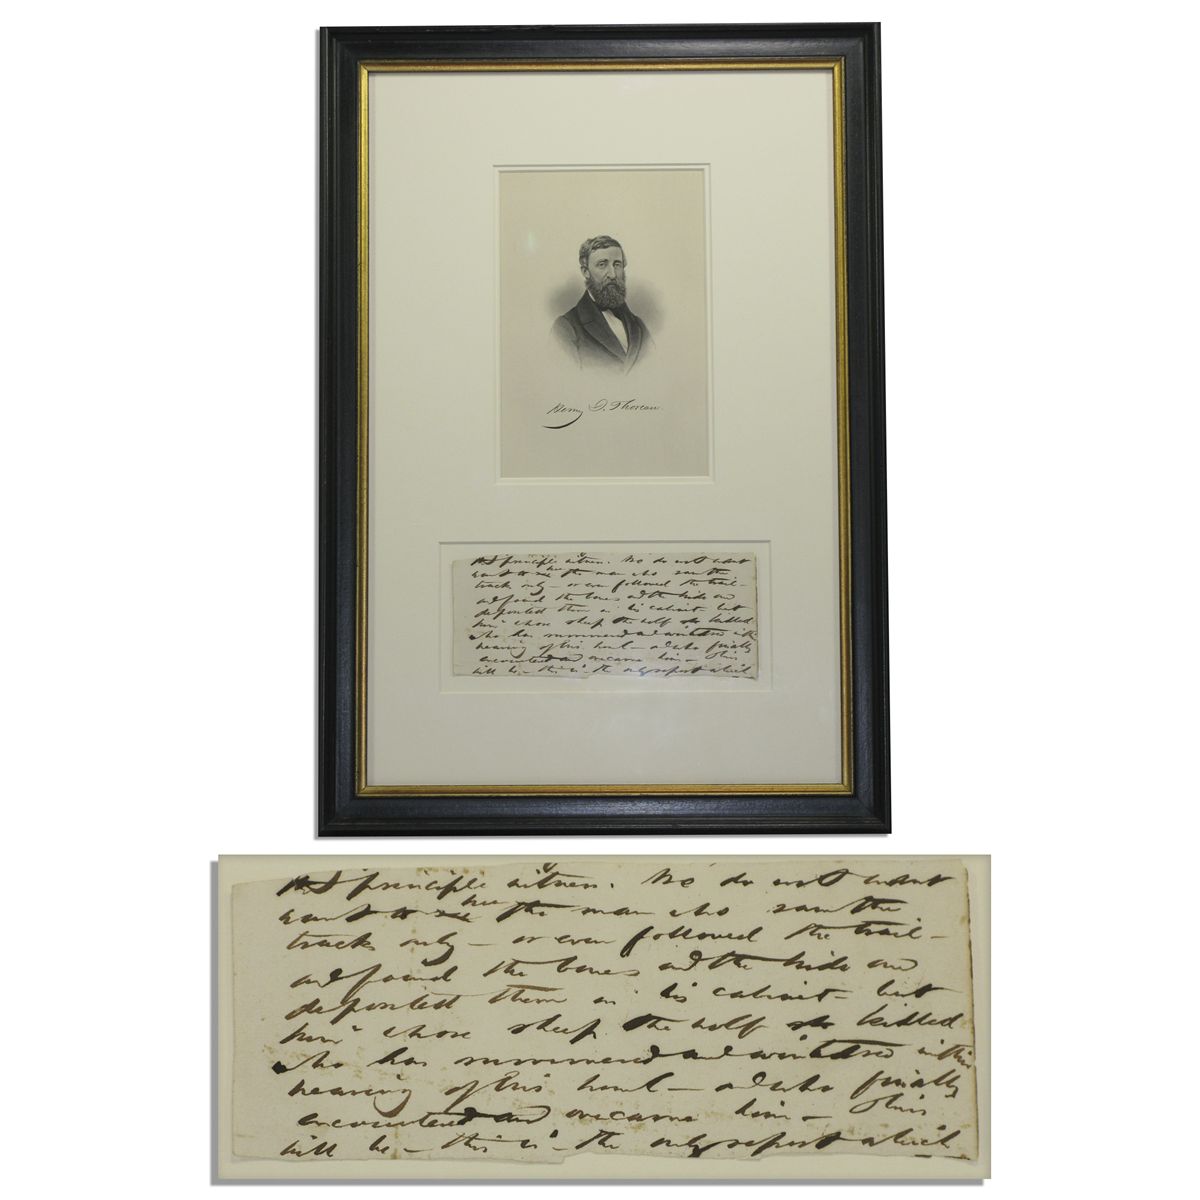 Henry D. Thoreau.
principle witness. We do not want
want to see hear the man who saw the
track only — or even followed the trail —
and found the bones and the hide and
deposited them in his cabinet — but
him whose sheep the wolf killed
who has summered and wintered within
hearing of his howl — and who finally
encountered and overcame him —
will be — this is the only report which
principle witness. We do not want
want to see hear the man who saw the
track only — or even followed the trail —
and found the bones and the hide and
deposited them in his cabinet — but
him whose sheep the wolf killed
who has summered and wintered within
hearing of his howl — and who finally
encountered and overcame him —
will be — this is the only report which